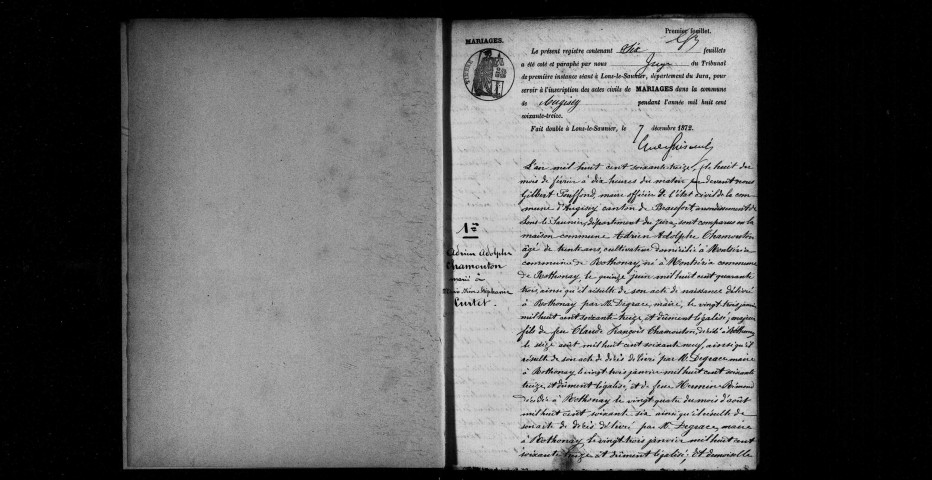 Premier feuillet.
MARIAGES.
Le présent registre contenant Dix feuillets
a été coté et paraphé par nous Juge du Tribunal
de première instance séant à Lons-le-Saunier, département du Jura, pour
servir à l'inscription des actes civils de MARIAGES dans la commune
de Augisey pendant l'année mil huit cent
soixante-treize.
Fait double à Lons-le-Saunier, le 7 décembre 1872.
TIMBRE
1er
Adrien Adolphe
Chamouton
marié à
Stéphanie
Curtet.
L'an mil huit cent soixante treize, le huit du
mois de février à dix heures du matin par devant nous
Gilbert Touffond, maire officier de l'état civil de la com
mune d'Augisey canton de Beaufort arrondissement de
Lons-le-Saunier, département du Jura, sont comparus en la
maison commune Adrien Adolphe Chamouton
âgé de trente ans, cultivateur domicilié à Montséria
commune de Rothonay, né à Montséria commune
de Rothonay, le quinze juin mil huit cent quarante
trois, ainsi qu'il résulte de son acte de naissance délivré
à Rothonay par M. Degrace, maire, le vingt trois janvier
mil huit cent soixante treize, et dûment légalisé; majeur
fils de feu Claude François Chamouton, décédé à Rothonay
le seize août mil huit cent soixante neuf, ainsi qu'il
résulte de son acte de décès délivré par M. Degrace maire
à Rothonay le vingt trois janvier mil huit cent soixante
treize, et dûment légalisé; et de feue
décédée à Rothonay le vingt quatre du mois d'août
mil huit cent soixante six ainsi qu'il résulte de
son acte de décès délivré par M. Degrace, maire
à Rothonay, le vingt trois janvier mil huit cent
soixante treize et dûment légalisé; Et demoiselle